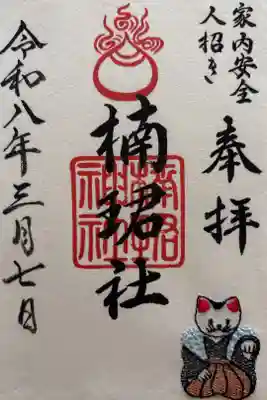 家内安全
人招き
奉拝
楠珺社
令和八年三月七日